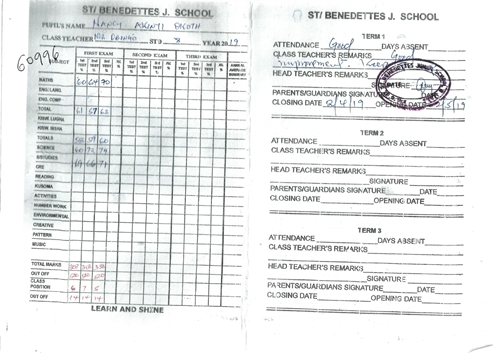 ST/ BENEDETTES J. SCHOOL
PUPIL'S NAME NANCY AKINYI
CLASS TEACHER STD 8 YEAR 2019
60996
SUBJECT FIRST EXAM SECOND EXAM THIRD EXAM
1st TEST % 2nd TEST % 3rd TEST %
MATHS 60 64 70
ENG/LANG.
ENG. COMP
TOTAL 61 57 62
KISW. LUGHA
KISW. INSHA
TOTALS 59 60
SCIENCE 60 72 79
S/STUDIES
CRE 69 66 71
READING
KUSOMA
ACTIVITIES
NUMBER WORK
ENVIRONMENTAL
CREATIVE
PATTERN
MUSIC
TOTAL MARKS
OUT OFF
CLASS POSITION 6 7 5
OUT OFF 14 14 14
LEARN AND SHINE
ST/ BENEDETTES J. SCHOOL
TERM 1
ATTENDANCE Good DAYS ABSENT
CLASS TEACHER'S REMARKS Good
improvement. Keep
HEAD TEACHER'S REMARKS
SIGNATURE
PARENTS/GUARDIANS SIGNATURE DATE
CLOSING DATE 2/4/19 OPENING DATE /5/19
TERM 2
ATTENDANCE DAYS ABSENT
CLASS TEACHER'S REMARKS
HEAD TEACHER'S REMARKS
SIGNATURE
PARENTS/GUARDIANS SIGNATURE DATE
CLOSING DATE OPENING DATE
TERM 3
ATTENDANCE DAYS ABSENT
CLASS TEACHER'S REMARKS
HEAD TEACHER'S REMARKS
SIGNATURE
PARENTS/GUARDIANS SIGNATURE DATE
CLOSING DATE OPENING DATE